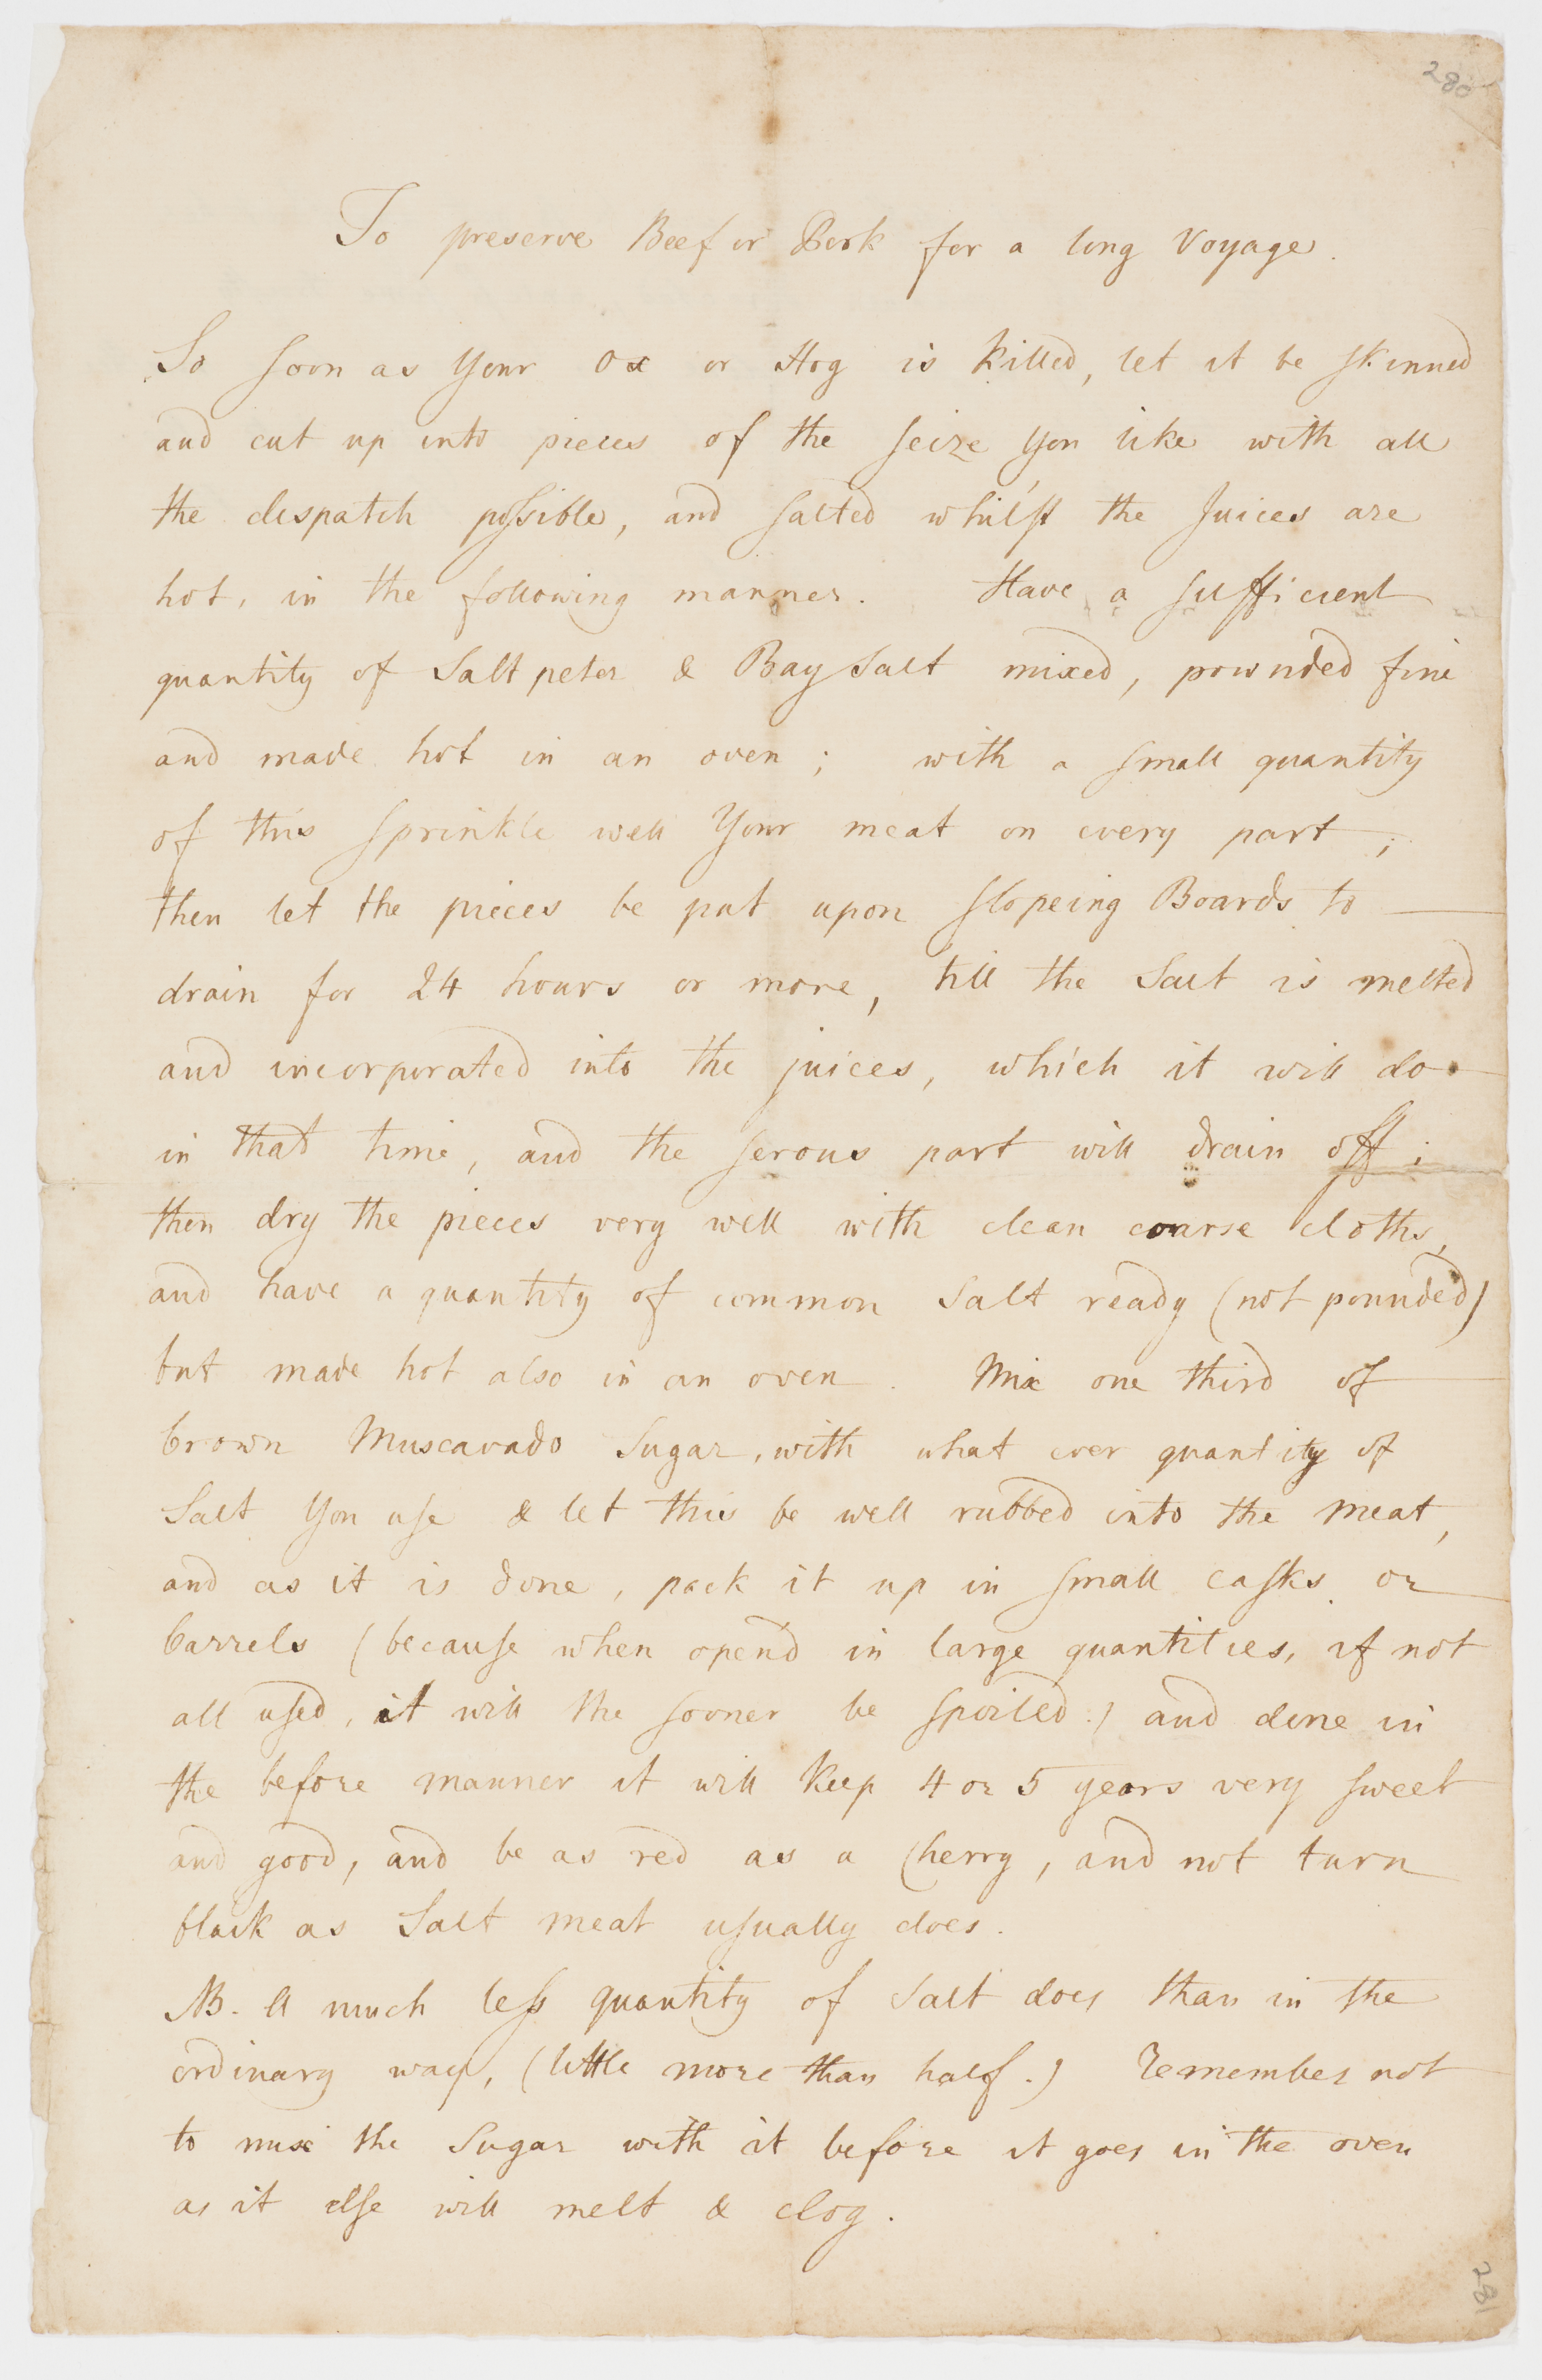 280
To preserve Beef or Pork for a long Voyage.
So soon as Your Ox or Hog is killed, let it be skinned
and cut up into pieces of the seize You like with all
the despatch possible, and salted whilst the Juices are
hot, in the following manner. Have a sufficient
quantity of Salt peter & Bay Salt mixed, pownded fine
and made hot in an oven; with a small quantity
of this sprinkle well Your meat on every part;
then let the pieces be put upon slopeing Boards to
drain for 24 hours or more, till the Salt is melted
and incorporated into the juices, which it will do
in that time, and the serous part will drain off;
then dry the pieces very well with clean coarse cloths,
and have a quantity of common Salt ready (not pounded)
but made hot also in an oven. Mix one third of
brown Muscavado Sugar, with what ever quantity of
Salt You use & let this be well rubbed into the meat,
and as it is done, pack it up in small casks or
barrels (because when opend in large quantities, if not
all used, it will the sooner be spoiled.) and done in
the before manner it will keep 4 or 5 years very sweet
and good, and be as red as a Cherry, and not turn
black as Salt meat usually does.
NB. A much less quantity of Salt does than in the
ordinary way, (little more than half.) Remember not
to mix the Sugar with it before it goes in the oven
as it else will melt & clog.
182